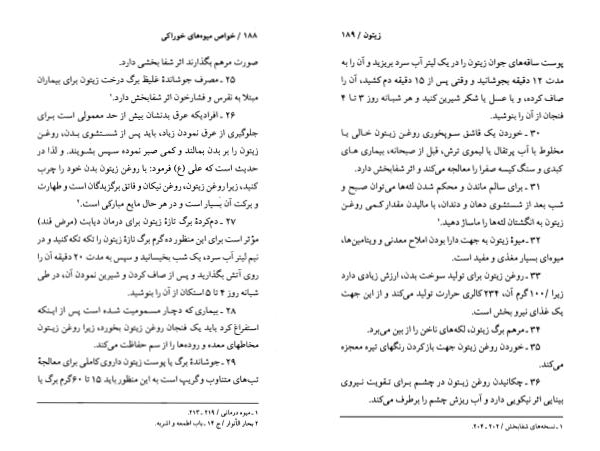 ۱۸۸ / خواص میوه‌های خوراکی
صورت مرهم بگذارند اثر شفا بخشی دارد.
۲۵ ـ مصرف جوشاندهٔ غلیظ برگ درخت زیتون برای بیماران
مبتلا به نقرس و فشارخون اثر شفابخش دارد.۱
۲۶ ـ افرادیکه عرق بدنشان بیش از حد معمولی است برای
جلوگیری از عرق نمودن زیاد، باید پس از شستشوی بدن، روغن
زیتون را بر بدن بمالند و کمی صبر نموده سپس بشویند. و لذا در
حدیث است که علی (ع) فرمود: با روغن زیتون بدن خود را چرب
کنید، زیرا روغن زیتون، روغن نیکان و برگزیدگان است و طهارت
و برکت آن بسیار است و در هر حال مایع مبارکی است.۲
۲۷ ـ دم‌کردهٔ برگ تازهٔ زیتون برای درمان دیابت (مرض قند)
مؤثر است برای این منظور ده‌گرم برگ تازهٔ زیتون را تکه تکه کنید و در
نیم لیتر آب سرد، یک شب بخیسانید و سپس به مدت ۲۰ دقیقه آن را
روی آتش بگذارید و پس از صاف کردن و شیرین نمودن آن، در طی
شبانه روز ۴ تا ۵ استکان از آن را بنوشید.
۲۸ ـ بیماری که دچار مسمومیت شده است پس از اینکه
استفراغ کرد باید یک فنجان روغن زیتون بخورد، زیرا روغن زیتون
مخاطهای معده و روده‌ها را از سم حفاظت می‌کند.
۲۹ ـ جوشاندهٔ برگ یا پوست زیتون داروی کاملی برای معالجهٔ
تب‌های متناوب و گریپ است به این منظور باید ۱۵ تا ۶۰ گرم برگ یا
۱ ـ میوه درمانی / ۲۱۹ ـ ۲۱۳.
۲ بحار الأنوار / ج ۱۴ ـ باب اطعمه و اشربه.
زیتون / ۱۸۹
پوست ساقه‌های جوان زیتون را در یک لیتر آب سرد بریزید و آن را به
مدت ۱۲ دقیقه بجوشانید و وقتی پس از ۱۵ دقیقه دم کشید، آن را
صاف کرده، و با عسل یا شکر شیرین کنید و هر شبانه روز ۳ تا ۴
فنجان از آن را بنوشید.
۳۰ ـ خوردن یک قاشق سوپخوری روغن زیتون خالی یا
مخلوط با آب پرتقال یا لیموی ترش، قبل از صبحانه، بیماری های
کبدی و سنگ کیسه صفرا را معالجه می‌کند و اثر شفابخش دارد.
۳۱ ـ برای سالم ماندن و محکم شدن لثه‌ها می‌توان صبح و
شب بعد از شستشوی دهان و دندان، با مالیدن مقدار کمی روغن
زیتون به انگشتان لثه‌ها را ماساژ دهید.۱
۳۲ ـ میوهٔ زیتون به جهت دارا بودن املاح معدنی و ویتامین‌ها،
میوه‌ای بسیار مغذی و مفید است.
۳۳ ـ روغن زیتون برای تولید سوخت بدن، ارزش زیادی دارد
زیرا /۱۰۰ گرم آن، ۲۳۴ کالری حرارت تولید می‌کند و از این جهت
یک غذای نیرو بخش است.
۳۴ ـ مرهم برگ زیتون، لکه‌های ناخن را از بین می‌برد.
۳۵ ـ خوردن روغن زیتون جهت باز کردن رنگهای تیره معجزه
می‌کند.
۳۶ ـ چکانیدن روغن زیتون در چشم برای تقویت نیروی
بینایی اثر نیکویی دارد و آب ریزش چشم را برطرف می‌کند.
۱ ـ نسخه‌های شفابخش / ۲۰۲ ـ ۲۰۴.